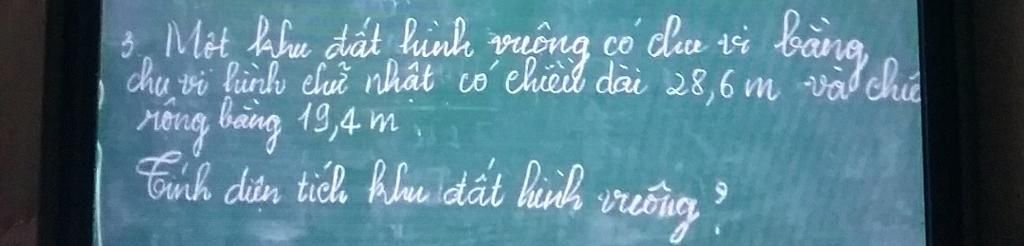 3. Một khu đất hình vuông có chu vi bằng
chu vi hình chữ nhật có chiều dài 28,6 m và chiề
rộng bằng 19,4 m.
Tính diện tích khu đất hình vuông?